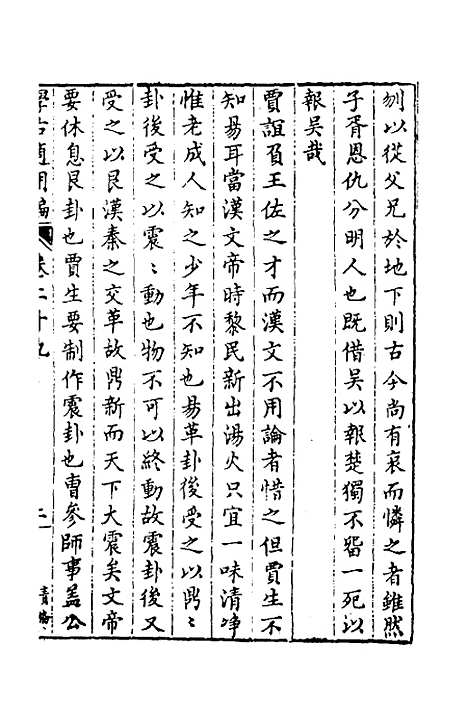 刎以從父兄於地下則古今尚有哀而憐之者雖然
子胥恩仇分明人也既借吴以報楚獨不畱一死以
報吴哉
賈誼負王佐之才而漢文不用論者惜之但賈生不
知昜耳當漢文帝時黎民新出湯火只宜一味清浄
惟老成人知之少年不知也昜革卦後受之以鼎〻
卦後受之以震〻動也物不可以終動故震卦後又
受之以艮漢秦之交革故鼎新而天下大震矣文帝
要休息艮卦也賈生要制作震卦也曹參師事盖公
學古適用編 卷二十九 二